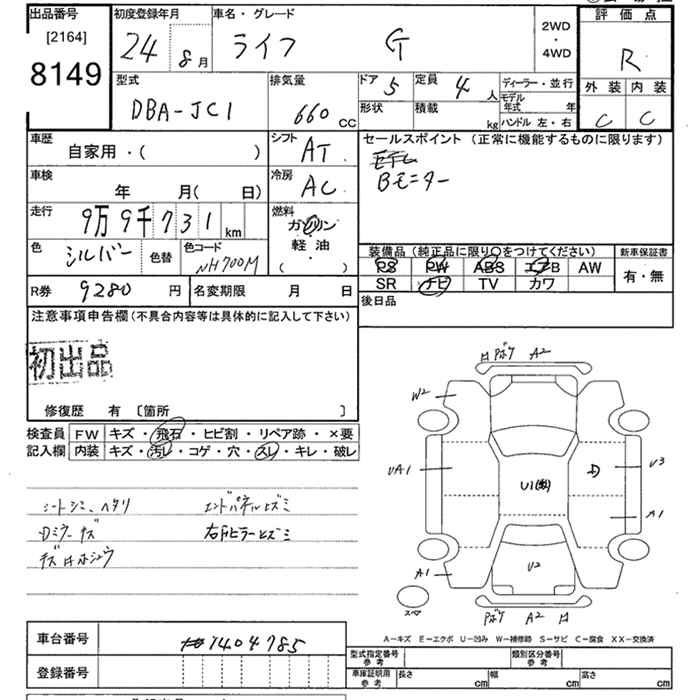 出品番号
[2164]
8149
初度登録年月
24 8月
車名・グレード
ライフ G
2WD
・
4WD
評価点
R
外装 内装
C C
型式
DBA-JC1
排気量
660 cc
ドア 5
定員 4人
形状
積載 kg
ディーラー・並行
モデル年式 年
ハンドル 左・右
車歴
自家用・( )
シフト
AT
セールスポイント (正常に機能するものに限ります)
Bモニター
車検
年 月( 日)
冷房
AC
走行
9万9千731 km
燃料
ガソリン
軽油
( )
色
シルバー
色替
色コード
NH700M
装備品 (純正品に限り○をつけてください)
PS PW ABS エアB AW
SR ナビ TV カワ
新車保証書
有・無
R券 9280 円
名変期限 月 日
後日品
注意事項申告欄(不具合内容等は具体的に記入して下さい)
初出品
修復歴 有 〔箇所 〕
検査員記入欄
FW キズ・飛石・ヒビ割・リペア跡・×要
内装 キズ・汚レ・コゲ・穴・スレ・キレ・破レ
シートシミ、ヘタリ
エンドパネルヒズミ
Dミラーキズ
右Fピラーヒズミ
キズ
Pボケ A2
W2
UA1
U1
D
U3
A1
A1
U2
スペア
Pボケ A2
A-キズ E-エクボ U-凹み W-補修跡 S-サビ C-腐食 XX-交換済
車台番号
1404785
登録番号
型式指定番号
参考
類別区分番号
参考
車庫証明用
参考
長さ cm
幅 cm
高さ cm